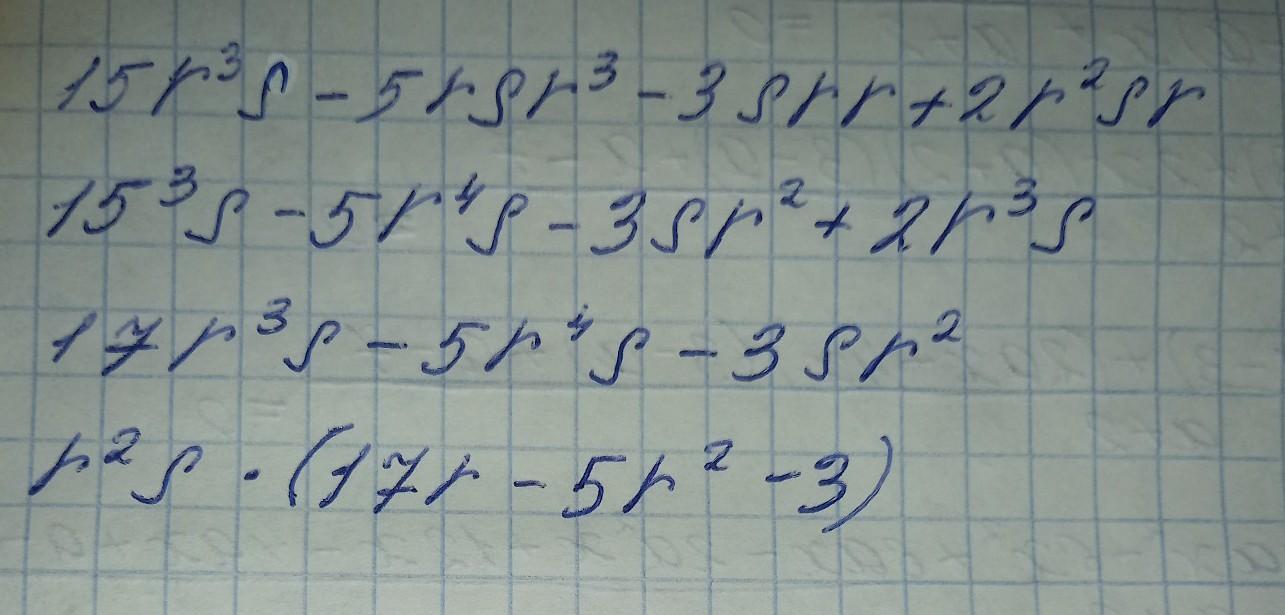 15r³s - 5rsr³ - 3srr + 2r²sr
15³s - 5r⁴s - 3sr² + 2r³s
17r³s - 5r⁴s - 3sr²
r²s · (17r - 5r² - 3)